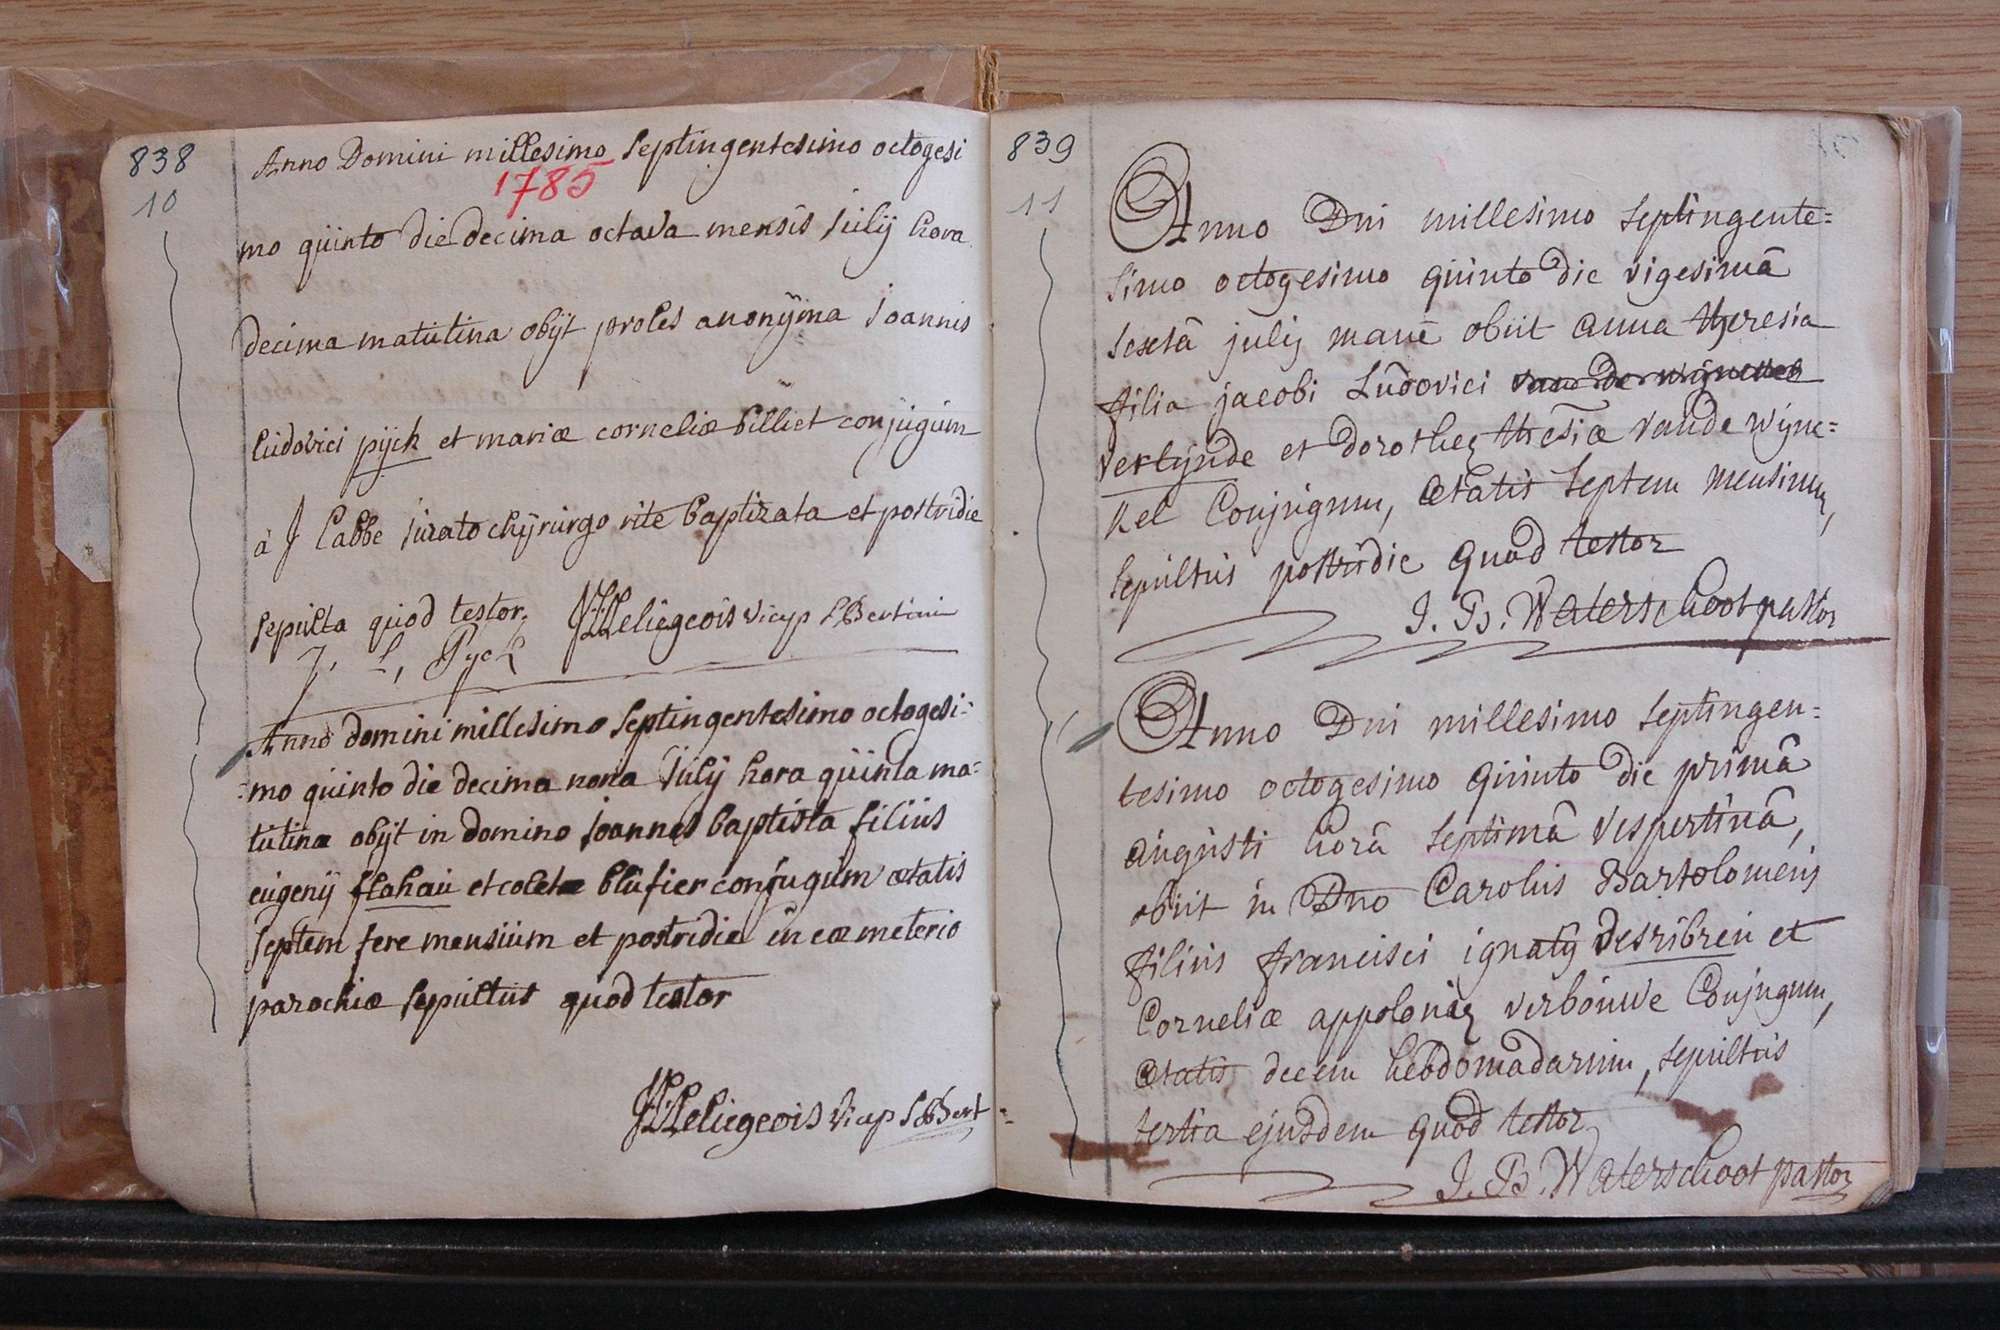 838
10
Anno Domini millesimo septingentesimo octogesi
1785
mo quinto die decima octava mensis Julÿ hora
decima matutina obÿt proles anonÿma Joannis
ludovici pÿck et mariæ corneliæ billiet conjugum
à J labbe jurato chÿrurgo rite baptizata et postridie
sepulta quod testor. Leliegeois vicep SBertini
J. L, Pyck
Anno domini millesimo septingentesimo octogesi-
-mo quinto die decima nona Julÿ hora quinta ma-
tutina obÿt in domino joannes baptista filius
eugenÿ flahau et coletæ blufier conjugum ætatis
septem fere mensium et postridie in cœmeterio
parochiæ sepultus quod testor
Leliegeois vicep SBert
839
11
Anno Dni millesimo septingente=
simo octogesimo quinto die vigesimâ
sextâ julÿ manè obiit anna theresia
filia jacobi Ludovici van de wijnckel
verlijnde et dorotheę thresiæ vande wijnc=
kel Conjugum, ætatis septem mensium,
sepultus postridie quod testor
J. B. Waterschoot pastor
Anno Dni millesimo septingen=
tesimo octogesimo quinto die primâ
augusti horâ septimâ vespertinâ,
obiit in Dno Carolus Bartolomeus
filius francisci ignatÿ desribreu et
Corneliæ appoloniæ verbouwe Conjugum,
ætatis decem hebdomadarum, sepultus
tertia ejusdem quod testor
J. B. Waterschoot pastor